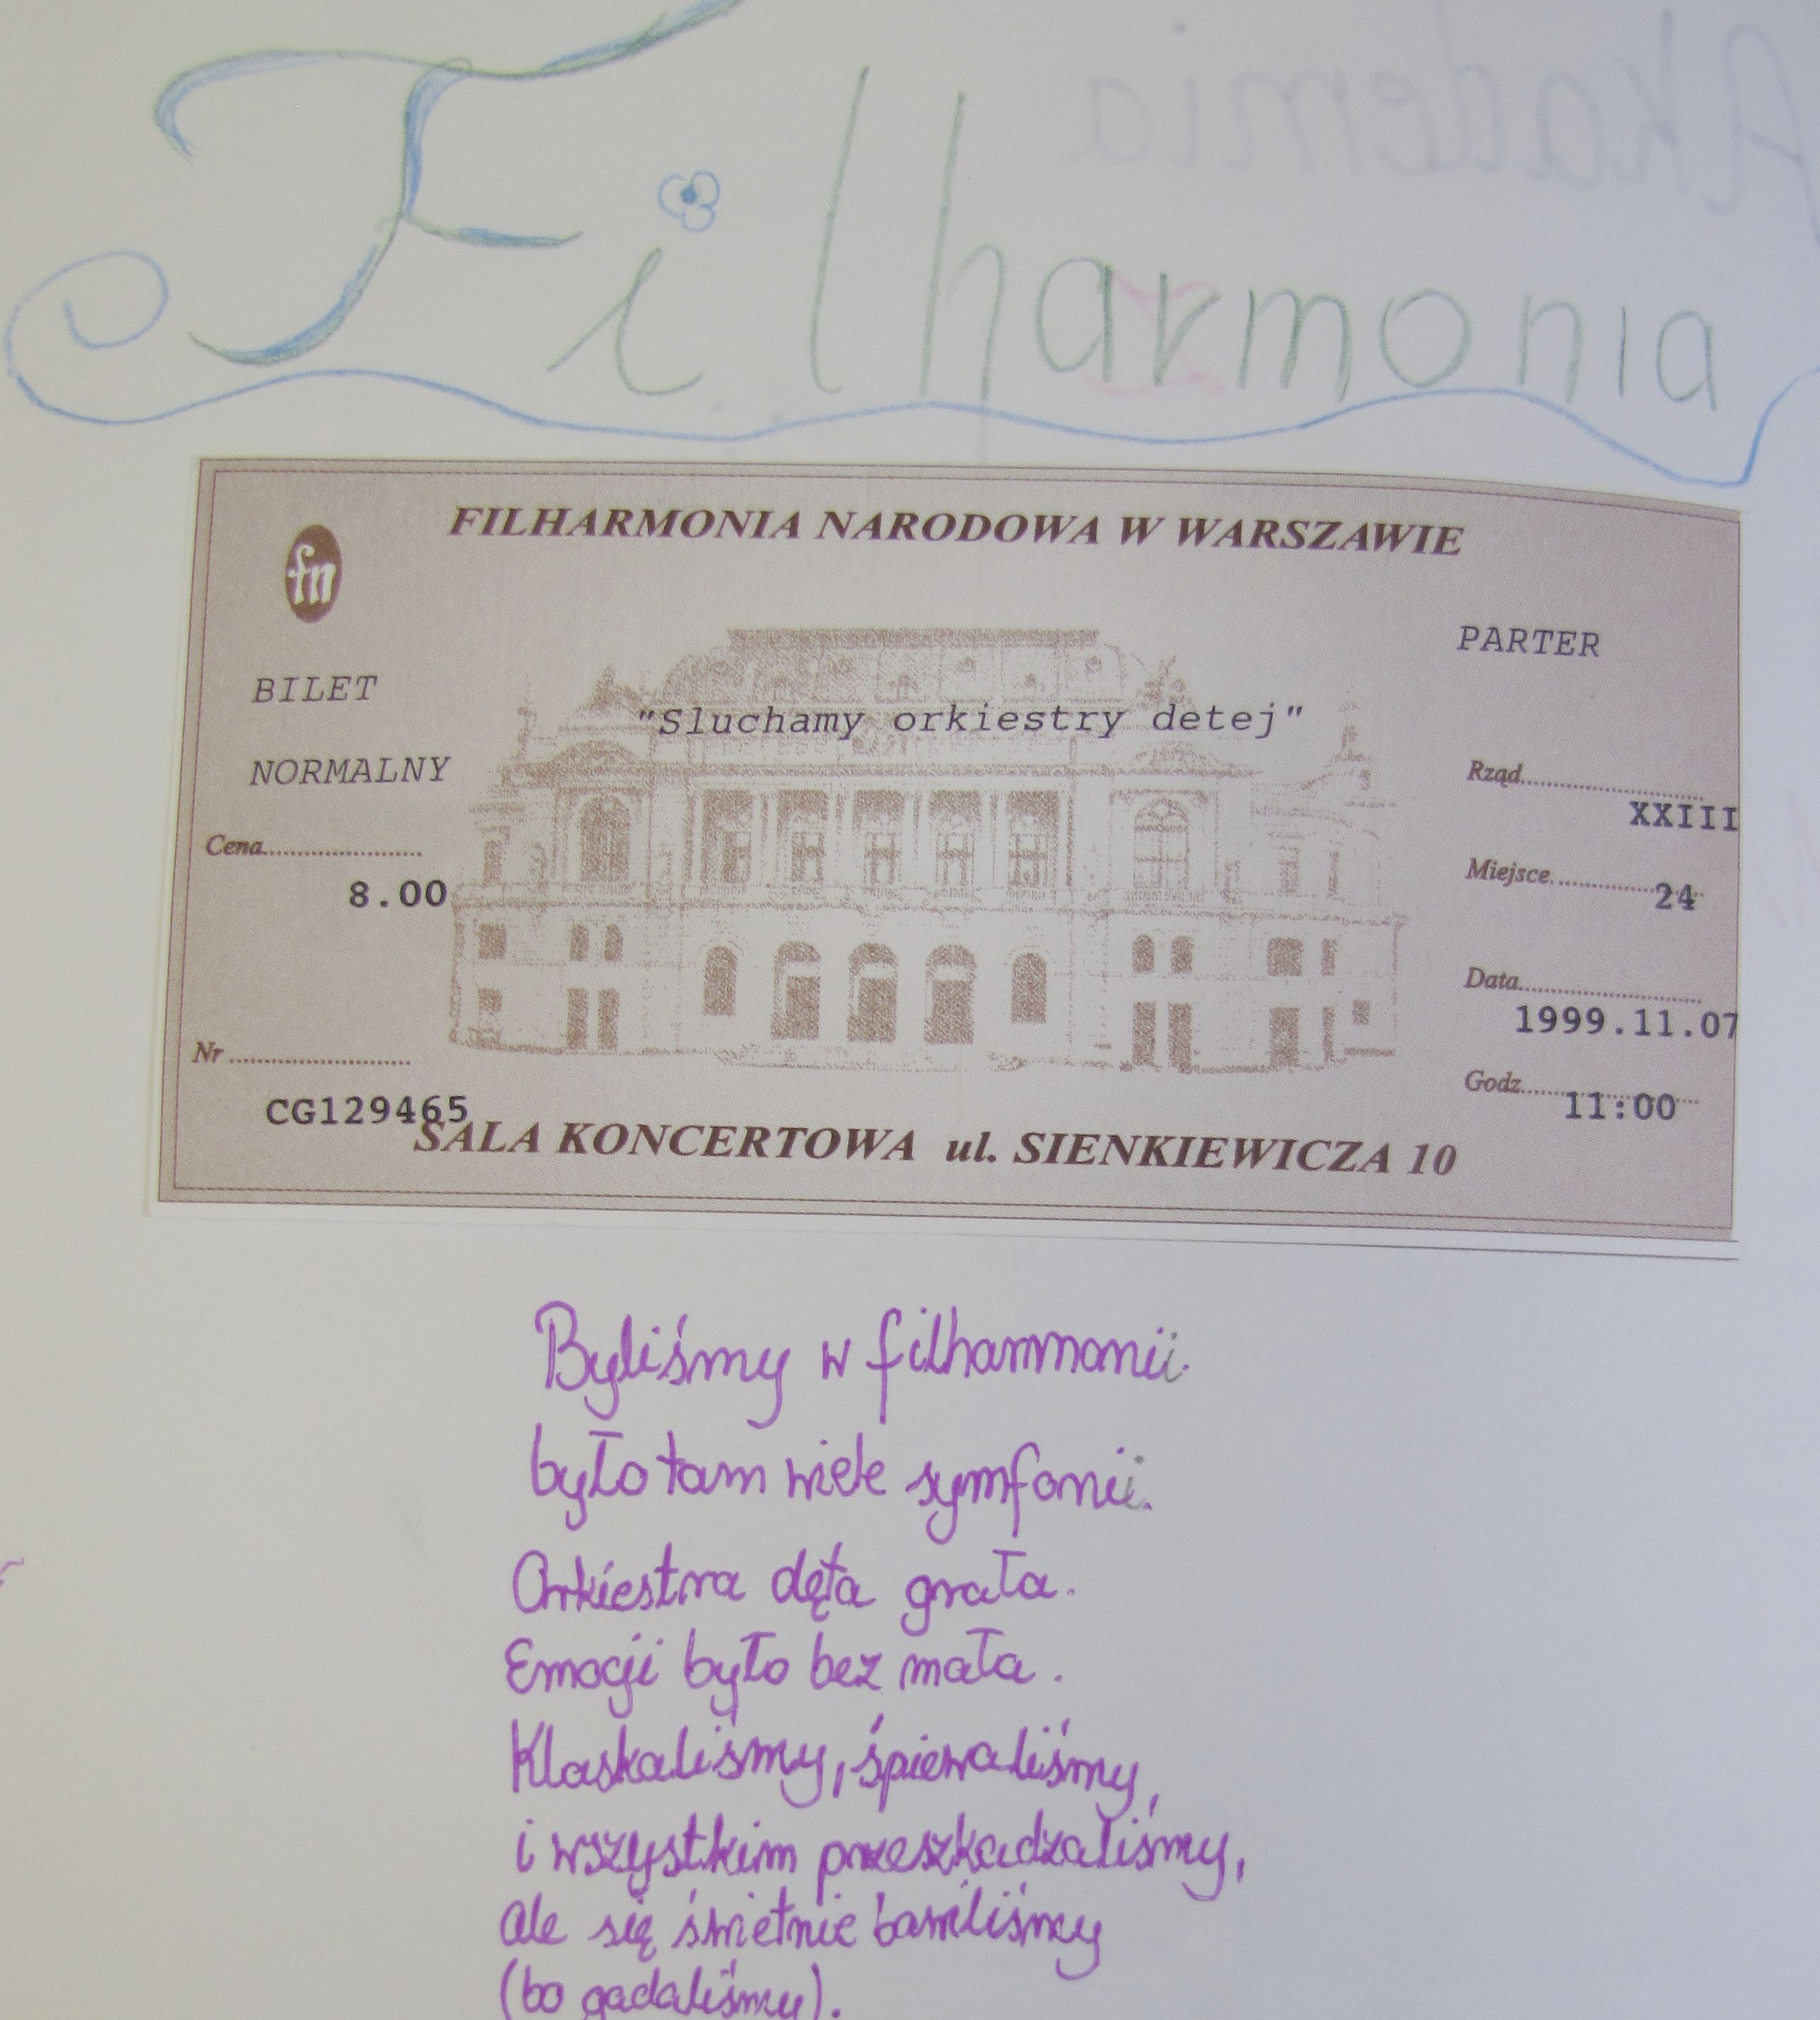 Akademia
Filharmonia
FILHARMONIA NARODOWA W WARSZAWIE
fn
PARTER
BILET
"Sluchamy orkiestry detej"
NORMALNY
Rząd
XXIII
Cena
8.00
Miejsce
24
Data
1999.11.07
Nr
CG129465
Godz
11:00
SALA KONCERTOWA ul. SIENKIEWICZA 10
Byliśmy w filharmonii.
było tam wiele symfonii.
Orkiestra dęta grała.
Emocji było bez mała.
Klaskaliśmy, śpiewaliśmy,
i wszystkim przeszkadzaliśmy,
ale się świetnie bawiliśmy
(bo gadaliśmy).